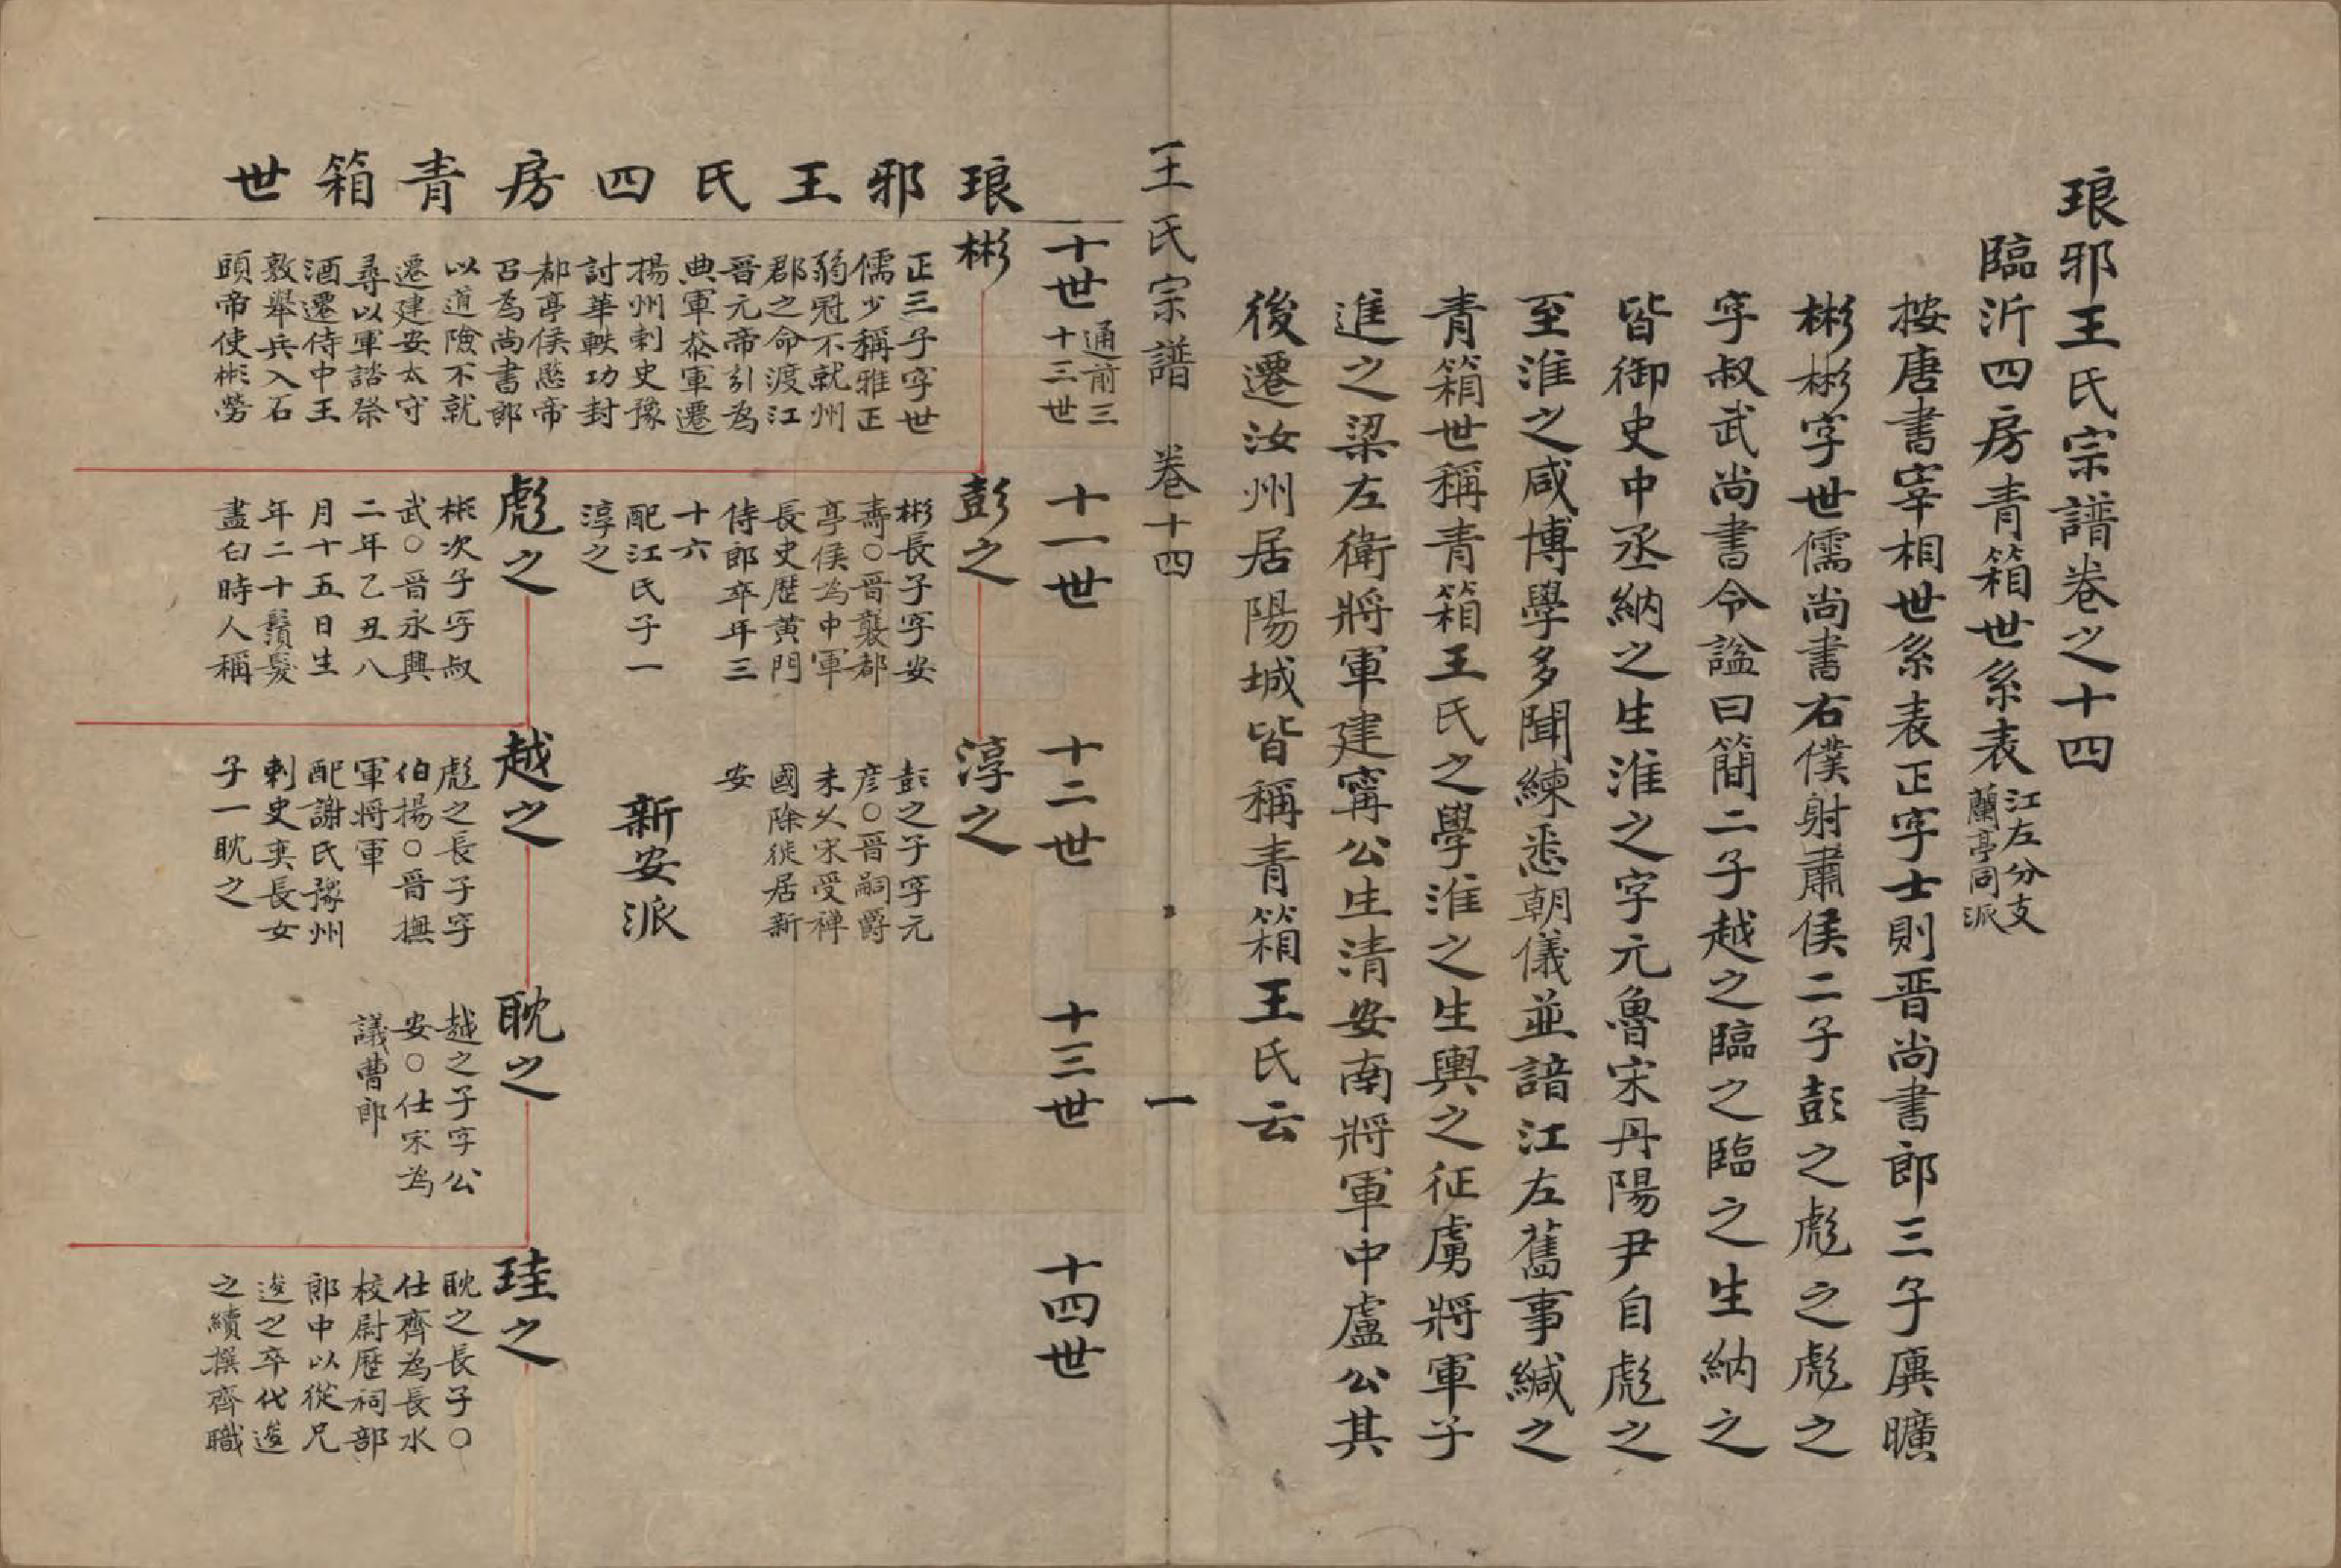 琅邪王氏宗譜卷之十四
臨沂四房青箱世系表
江左分支
蘭亭同派
按唐書宰相世系表正字士則晋尚書郎三子廙曠
彬彬字世儒尚書右僕射肅侯二子彭之彪之彪之
字叔武尚書令謚曰簡二子越之臨之臨之生納之
皆御史中丞納之生淮之字元魯宋丹陽尹自彪之
至淮之咸博學多聞練悉朝儀並諳江左舊事緘之
青箱世稱青箱王氏之學淮之生輿之征虜將軍子
進之梁左衛將軍建寗公生清安南將軍中盧公其
後遷汝州居陽城皆稱青箱王氏云
王氏宗譜 卷十四 一
琅邪王氏四房青箱世
十世
通前三
十三世
十一世
十二世
十三世
十四世
彬
正三子字世
儒少稱雅正
弱冠不就州
郡之命渡江
晋元帝引為
典軍叅軍遷
揚州刺史豫
討華軼功封
都亭侯愍帝
召為尚書郎
以道險不就
遷建安太守
尋以軍諮祭
酒遷侍中王
敦舉兵入石
頭帝使彬勞
彭之
彬長子字安
壽○晋襲都
亭侯為中軍
長史歷黄門
侍郎卒年三
十六
配江氏子一
淳之
淳之
彭之子字元
彦○晋嗣爵
未乆宋受禅
國除徙居新
安
新安派
彪之
彬次子字叔
武○晋永興
二年乙丑八
月十五日生
年二十鬚髮
盡白時人稱
越之
彪之長子字
伯揚○晋撫
軍將軍
配謝氏豫州
刺史奕長女
子一耽之
耽之
越之子字公
安○仕宋為
議曹郎
珪之
耽之長子○
仕齊為長水
校尉歷祠部
郎中以從兄
逡之卒代逡
之續撰齊職